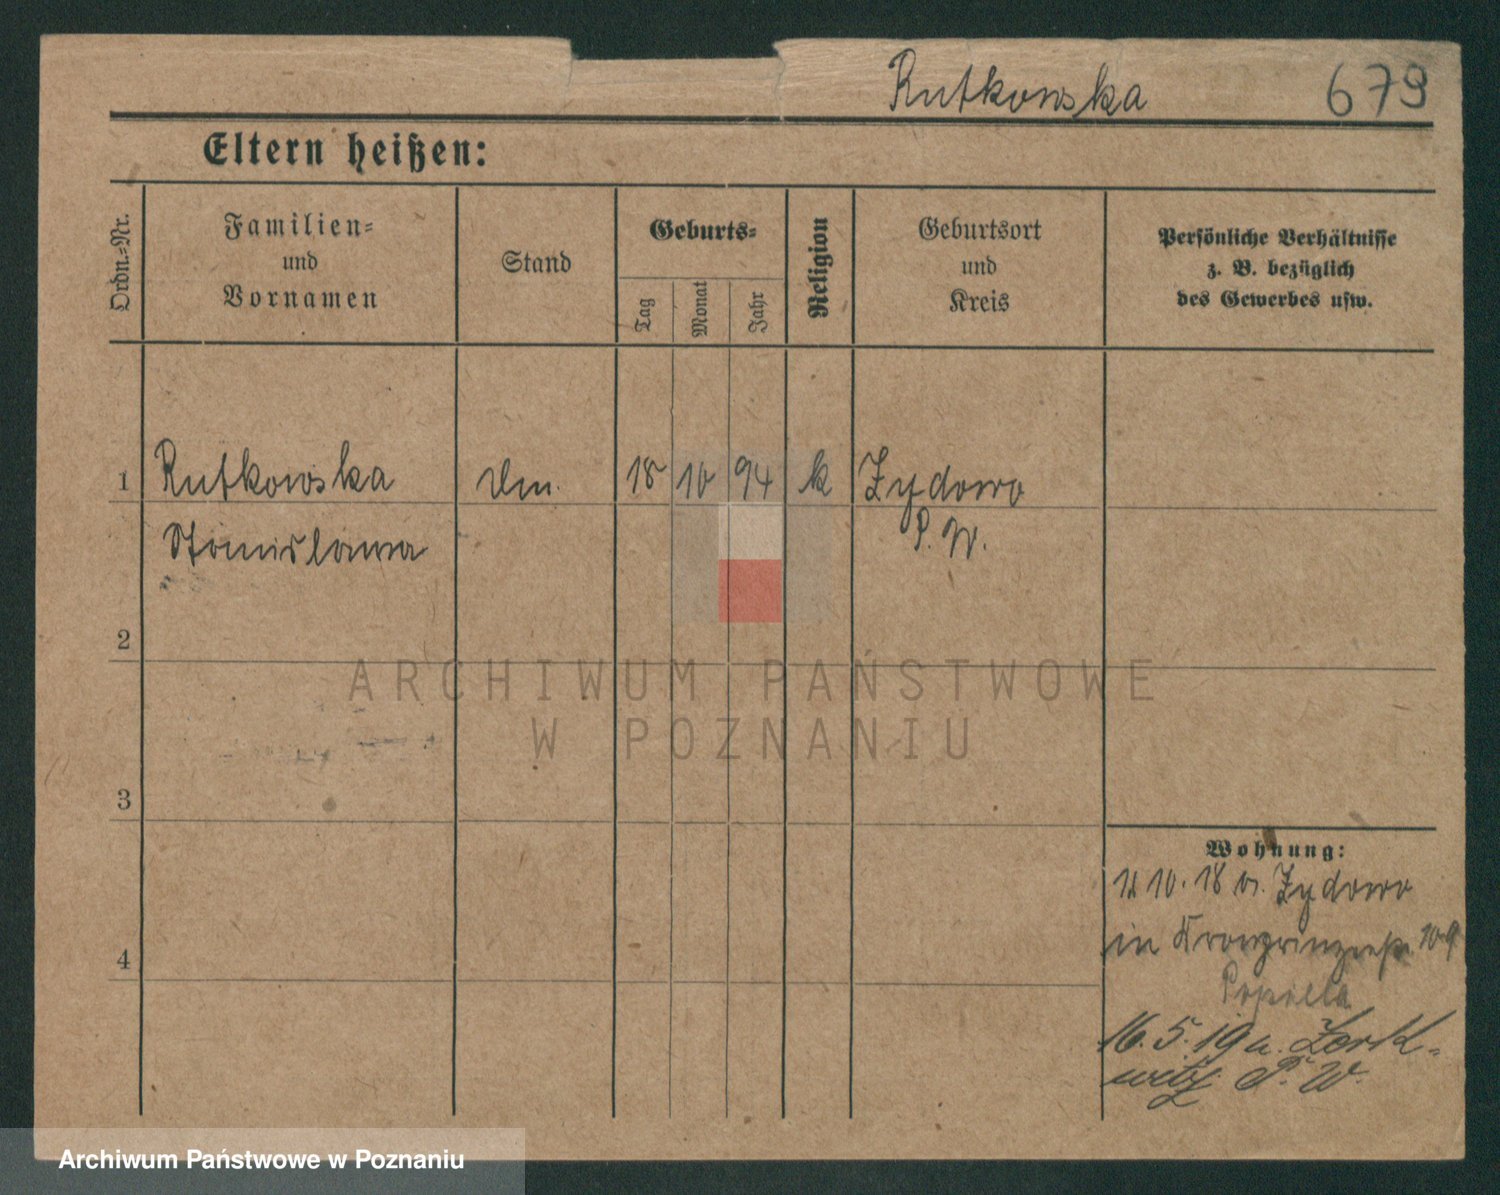 Rutkowska 679
Eltern heißen:
Ordn.-Nr.
Familien-
und
Vornamen
Stand
Geburts-
Tag
Monat
Jahr
Religion
Geburtsort
und
Kreis
Persönliche Verhältnisse
z. B. bezüglich
des Gewerbes usw.
1 Rutkowska 18 10 94 k Zydowo
Stanislawa P. W.
2
3
4
Wohnung:
10. 18 v. Zydowo
in
16. 5. 19 a. Zerk-
witz P. W.
ARCHIWUM PAŃSTWOWE
W POZNANIU
Archiwum Państwowe w Poznaniu